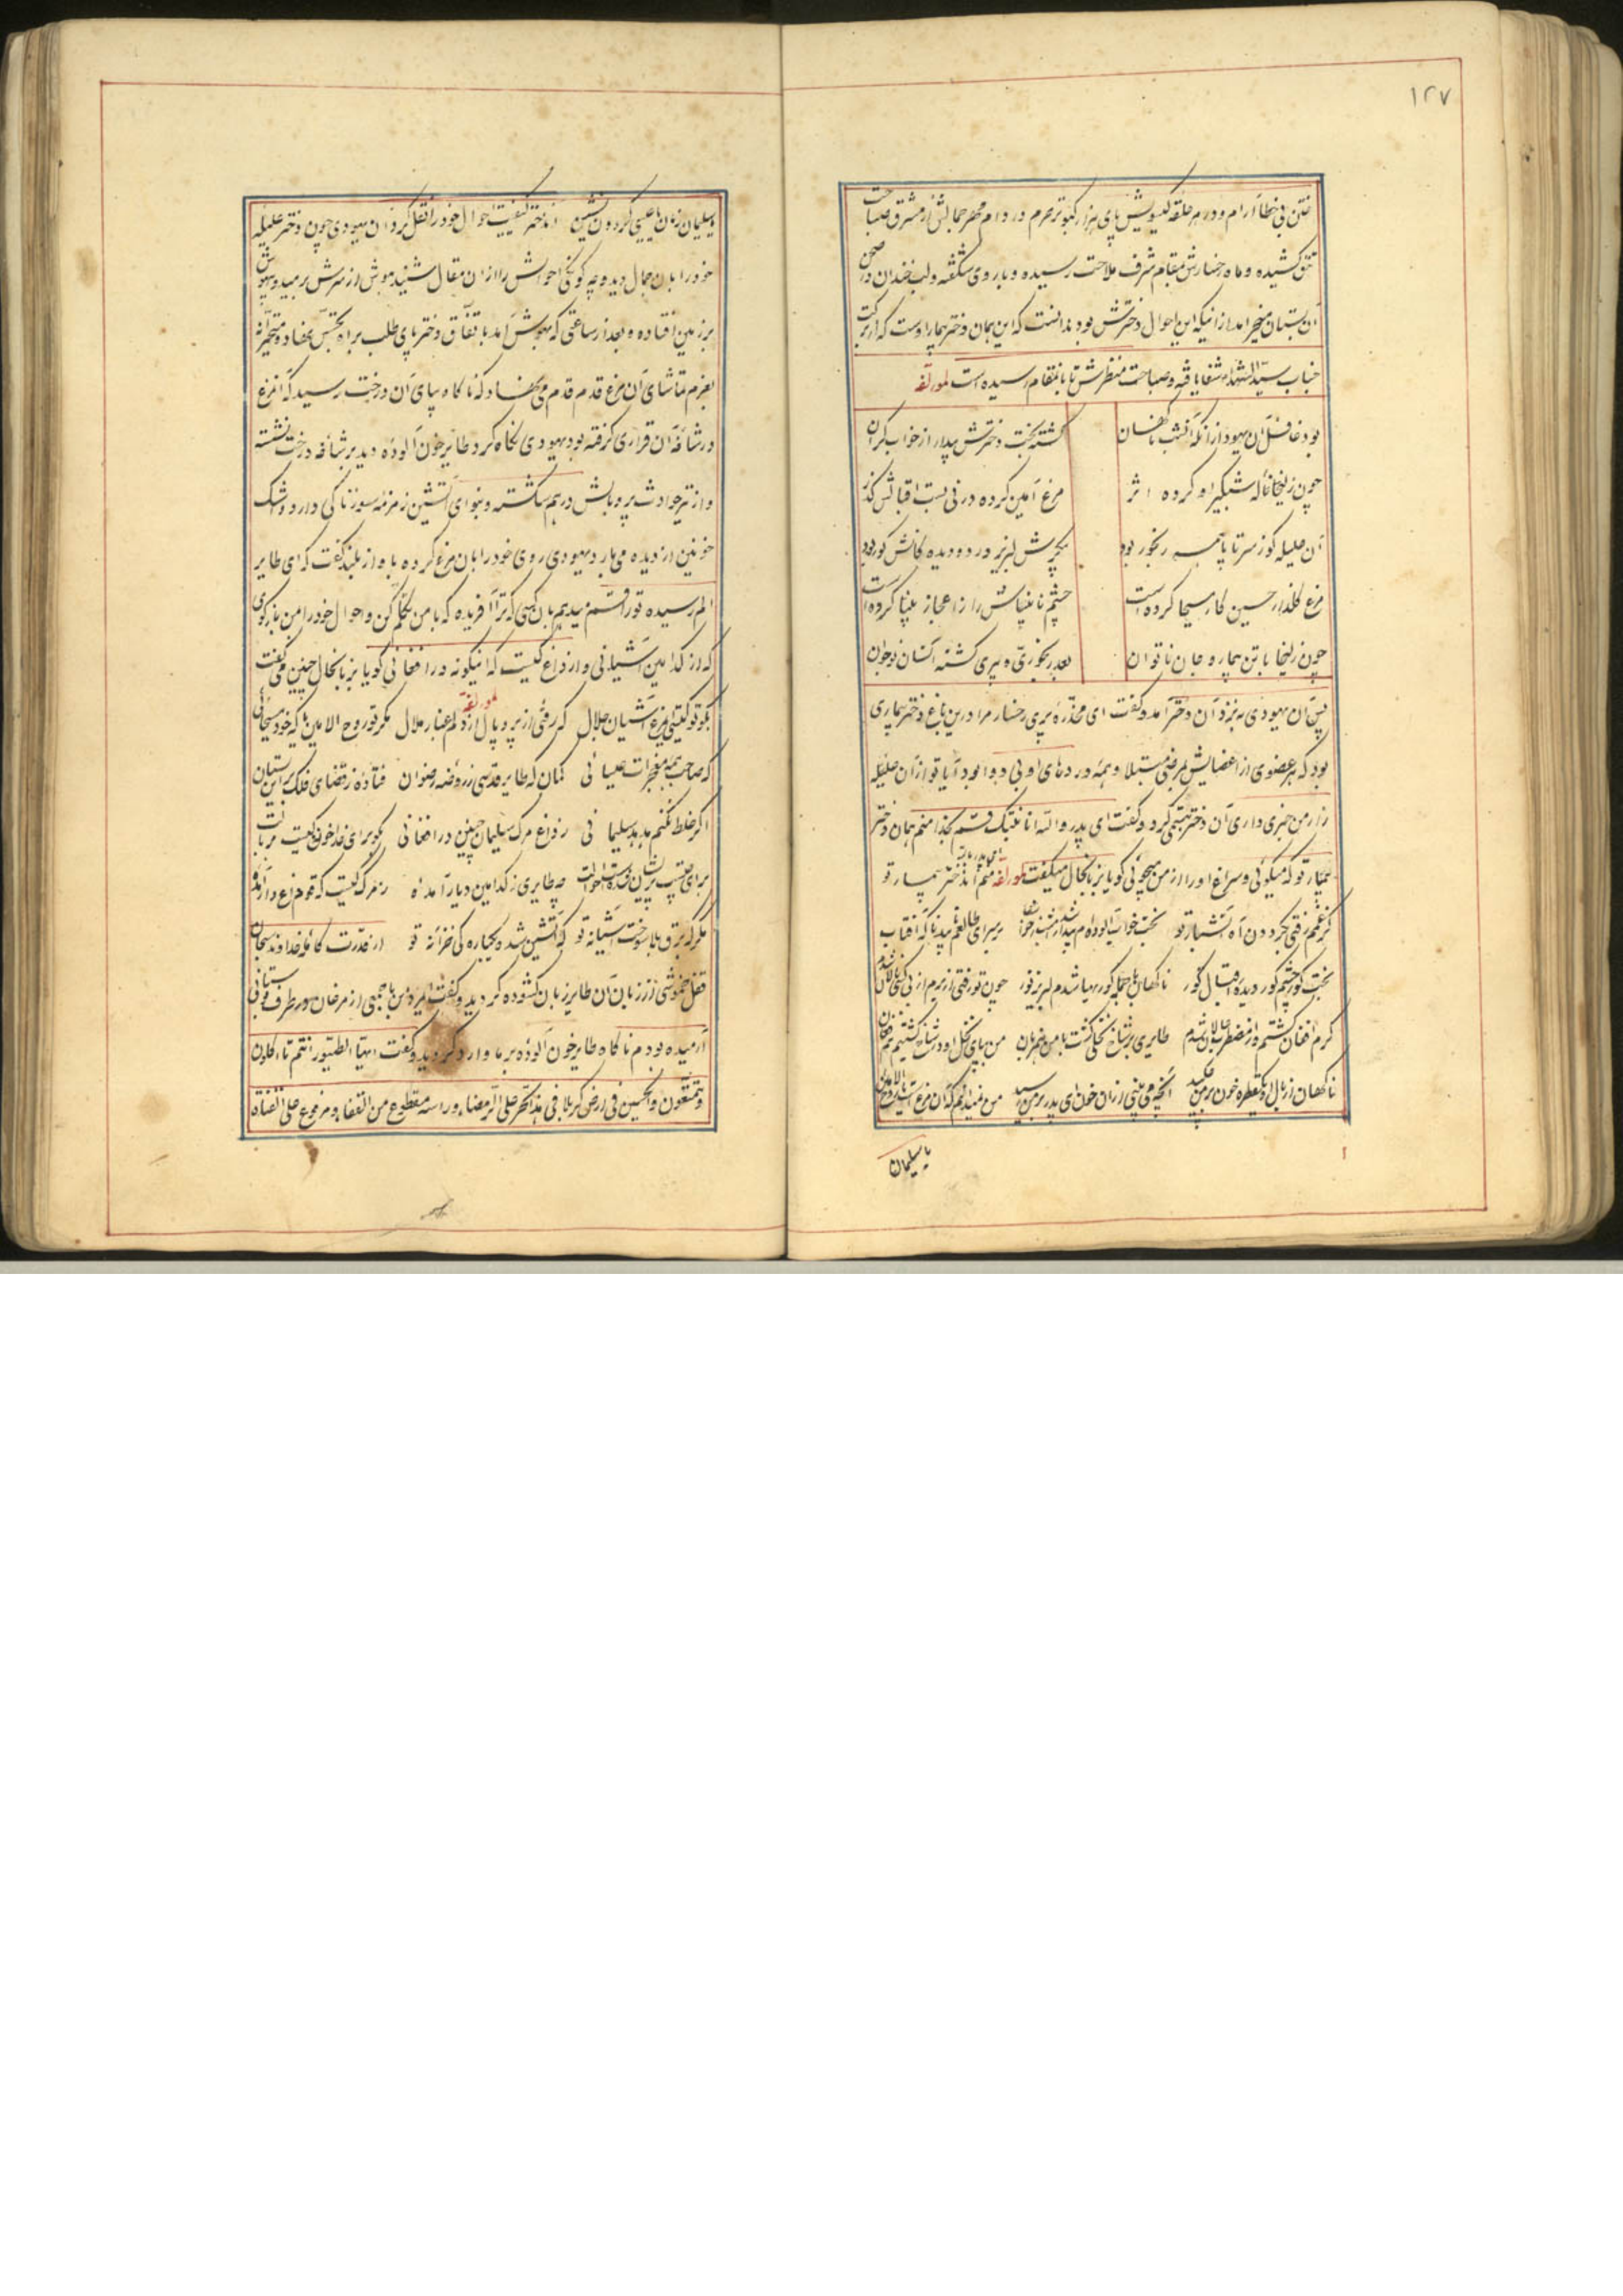 ١٢٧
ختن بی خطا آرام و در هر حلقه گیسویش پای هزار کبوتر حرم در دام مهر جمالش از مشرق صباحت
تتق کشیده و ماه رخسارش بمقام شرف ملاحت رسیده و با روی شکفته و لب خندان در صحن
آن بستان میخرامد از اینکه این احوال دخترش بود ندانست که این همان دختر بیمار اوست که از برکت
جناب سیدالشهدا شفا یافته و صباحت منظرش تا باینمقام رسیده است لمؤلفه
بود غافل آن یهود از آنکه آنشب ناگهان
گشته بخت دخترش بیدار از خواب گران
چون زلیخا ناله شبگیر او کرده اثر
مرغ آمین کرده در نی بست اقبالش گذر
آن علیله کو ز سر تا پا همه رنجور بود
پیکرش لبریز درد و دیده گانش کور بود
مرغ گلذار حسین کار مسیحا کرده است
چشم نابیناش را ز اعجاز بینا کرده است
چون زلیخا با تن بیمار و جان ناتوان
بعد رنجوری و پیری گشته آنسان نوجوان
پس آن یهودی به نزد آن دختر آمد و گفت ای مخدره پری رخسار مرا درین باغ دختر بیماری
بود که هر عضوی از اعضایش بمرضی مبتلا و همه دردهای او بی دوا بود آیا تو از آن علیله
زار من خبری داری آن دختر تبسمی کرد و گفت ای پدر والله انا بنتک قسم بخدا منم همان دختر
بیمار تو که میگوئی و سراغ او را از من میجوئی گویا بزبانحال میگفت لمؤلفه منم آن دختر بیمار تو
کز غمم رفتی بگردون آه آتشبار تو بخت خواب آلوده ام بیدار شد
بخت کور چشم کور دیده اقبال کور ناگهان با جمله کوریها شدم لبریز نور چون تو رفتی از برم از بی کسی نالان شدم
گرم افغان گشتم و از مضطرب حالان شدم طایری بر شاخ نخلی گشت با من همزبان من بپای نخل او در شاخ گشتیم نغمه خوان
ناگهان از بال او یکقطره خون بر من چکید آنچه می بینی از آن خون ای پدر بر من رسید
یا سلیمان
یا سلیمان زمان یا عیسی گردون نشین آندختر کیفیت احوال خود را نقل کرد آن یهودی چون دختر علیله
خود را بآن جمال دیده و چه گونگی احوالش را از آن مقال شنید هوش از سرش رمید و بیهوش
بر زمین افتاده و بعد از ساعتی که بهوش آمد باتفاق دختر پای طلب براه تجسس نهاد و متحیرانه
بعزم تماشای آن مرغ قدم قدم می نهاد که ناگاه بپای آن درخت رسید که آنمرغ
در شاخه آن قراری گرفته بود یهودی نگاه کرد طایر خون آلوده دید بر شاخه درخت نشسته
و از تیر حوادث پر و بالش درهم شکسته و بنوای آتشین زمزمه سوزناکی دارد و اشک
خونین از دیده می بارد یهودی روی خود را بآن مرغ کرده به آواز بلند گفت که ای طایر
الم رسیده تو را قسم میدهم بآن کسی که ترا آفریده که با من تکلم کن و احوال خود را بمن بازگوی
که از کدامین آشیانی و از داغ کیست که اینگونه در افغانی گویا بزبانحال چنین می گفت
لمؤلفه
بگو تو کیستی ایمرغ آشیان جلال که رفته از پر و بال تو غبار ملال مگر تو روح الامینی که خود مسیحائی
که صاحب همه معجزات عیسائی گمان که طایر قدسی ز روضه رضوان فتاده ز قضای فلک بر این بستان
اگر غلط نکنم هدهد سلیمانی ز داغ مرگ سلیمان چنین در افغانی بگو برای خدا خون کیست بر بالت
چه طایری ز کدامین دیار آمده ز مرگ کیست که تو داغدار آمده
مگر که برق بلا سوخت آشیانه تو که آتشین شده یکباره گی فسانه تو از قدرت کامله خداوند سبحان
قفل خموشی از زبان آن طایر زبان کشوده گردید و گفت ایمرد من با جمعی از مرغان در طرف بوستانی
آرمیده بودم ناگاه طایر خون آلوده بر ما وارد گردید و گفت ایها الطیور انتم تاکلون
و تتمتعون والحسین فی ارض کربلا فی هذا الحر علی الرمضاء و راسه مقطوع من القفا و مرفوع علی القناة